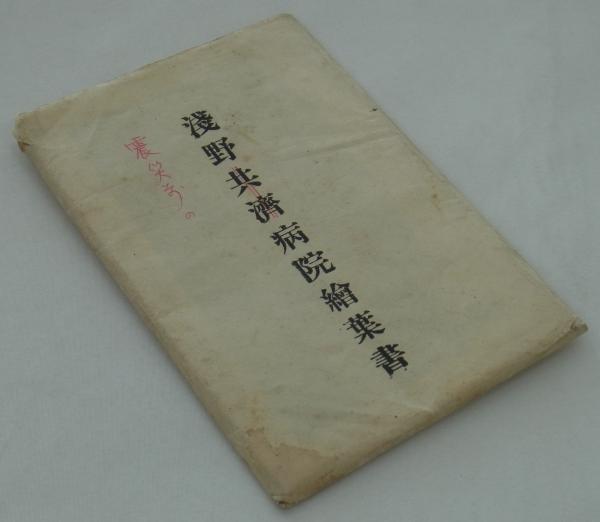 淺野共濟病院繪葉書
震災前の